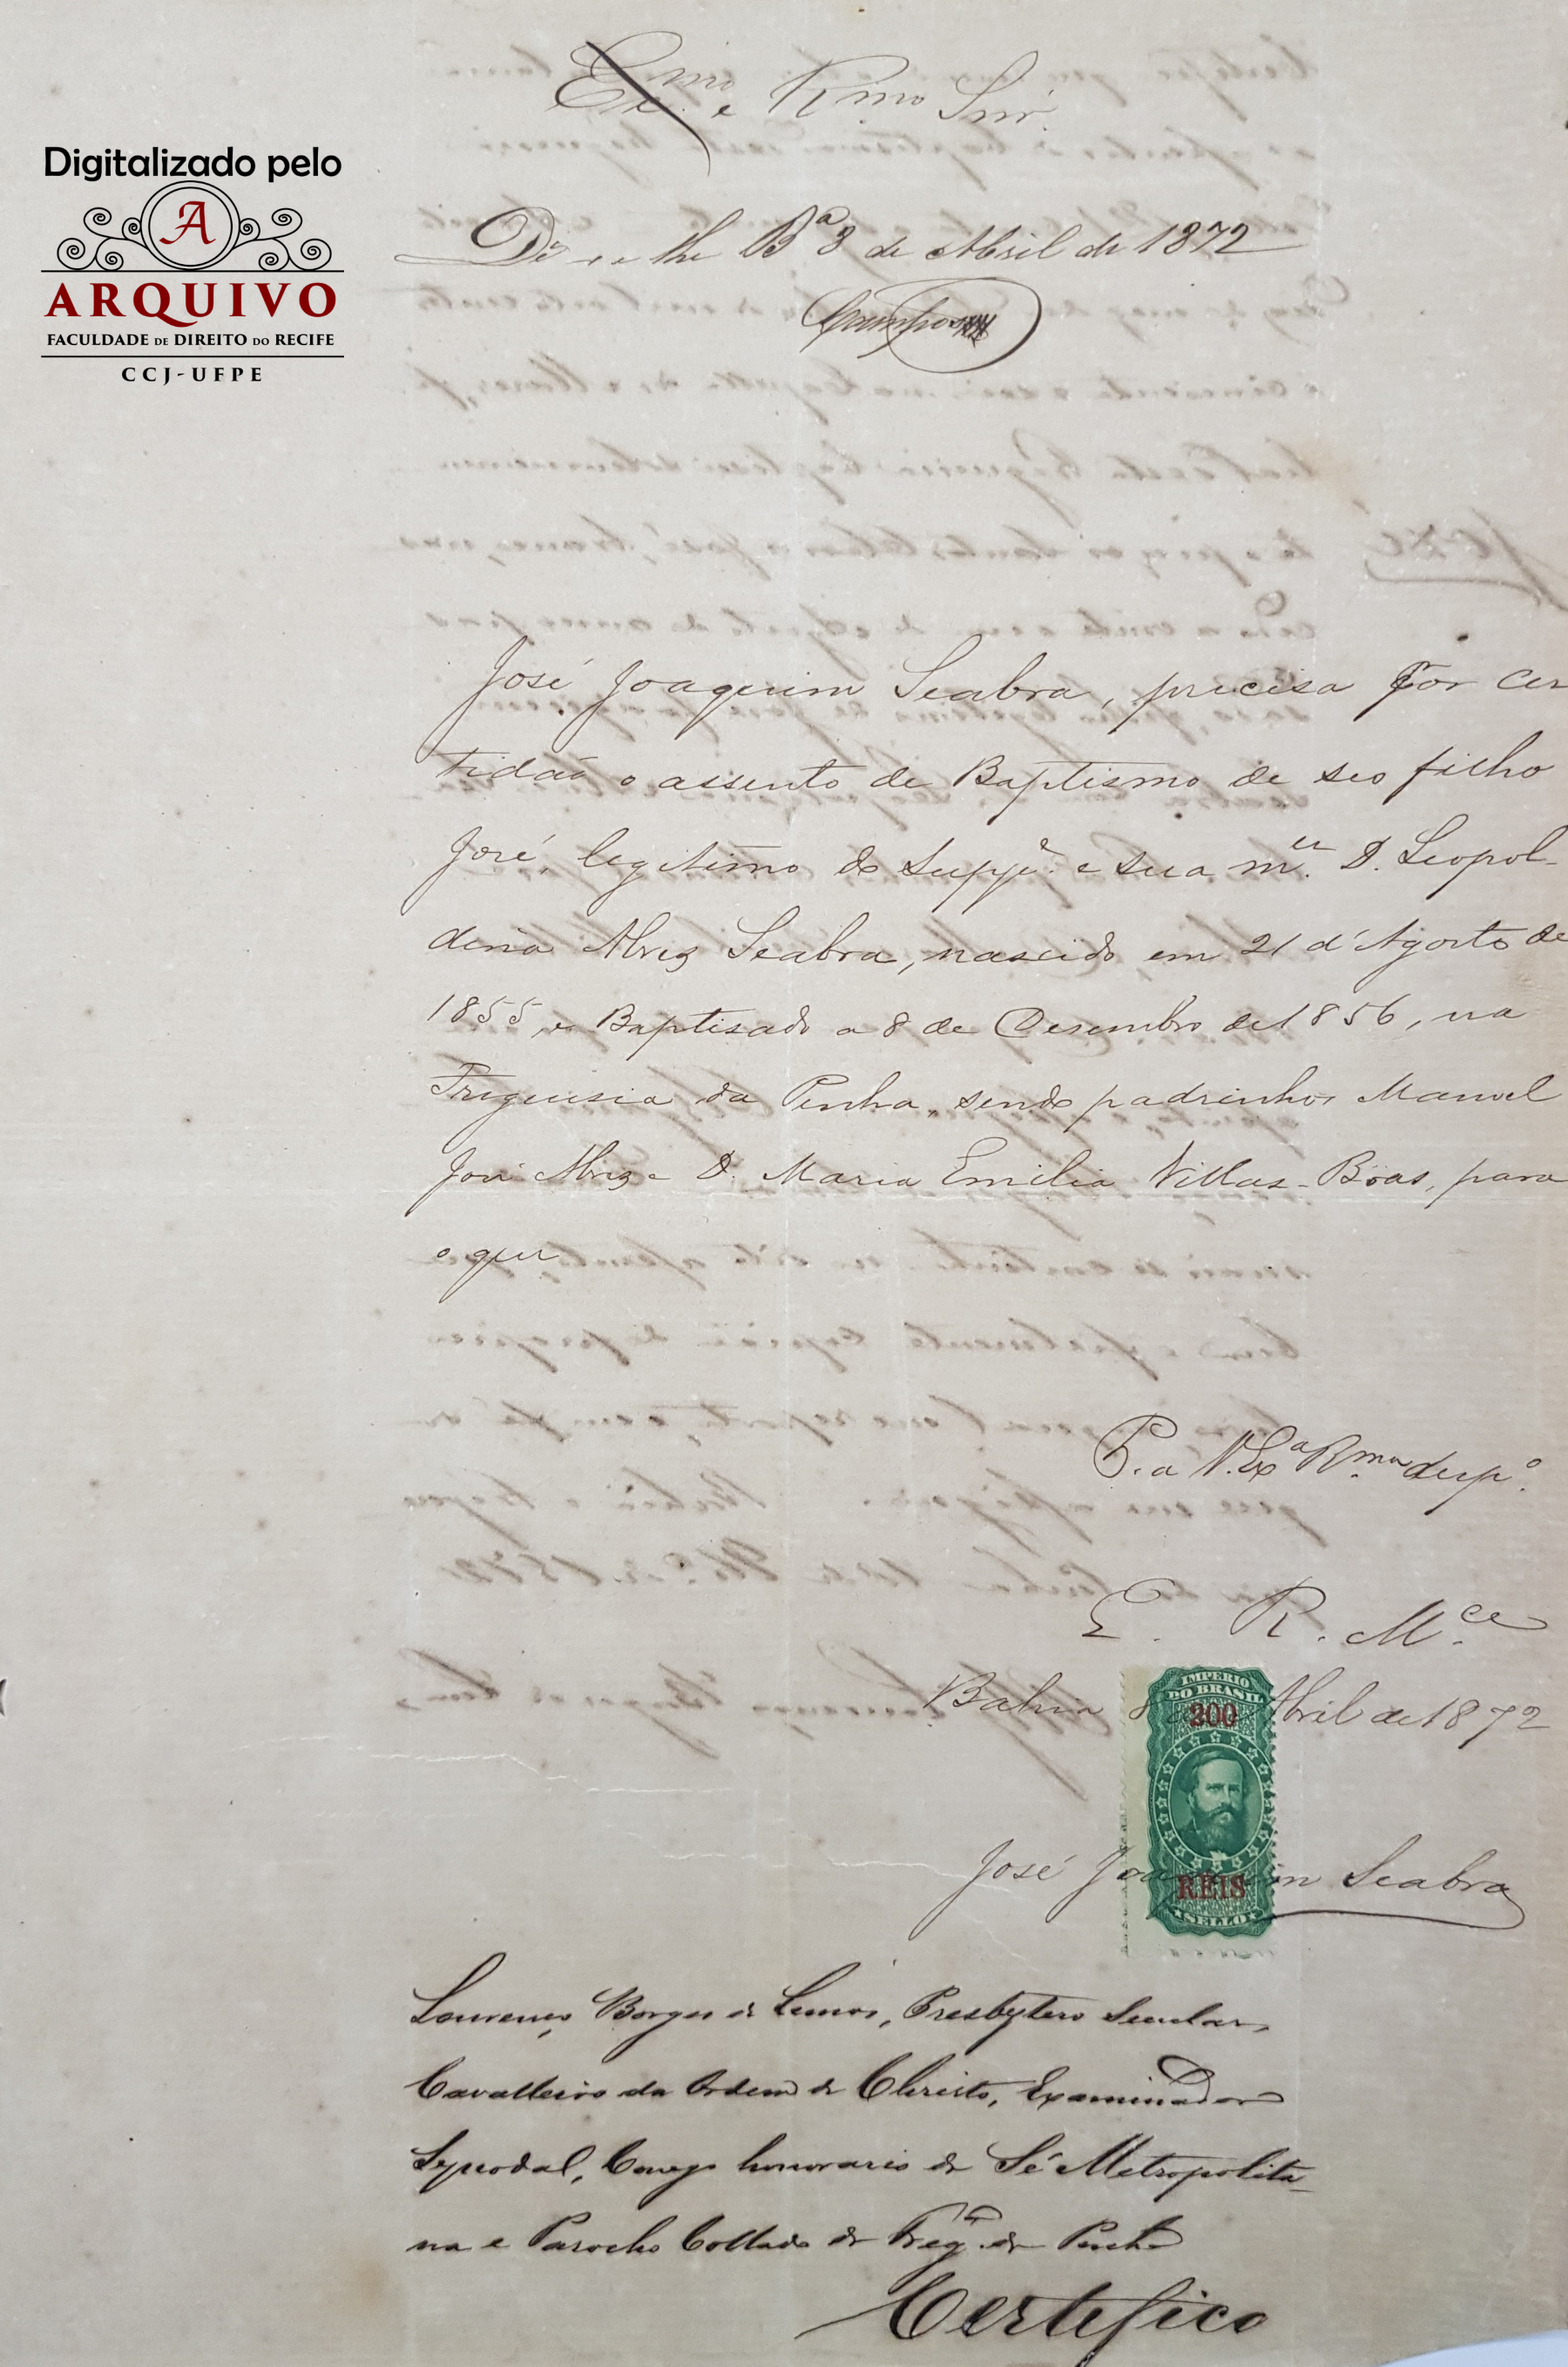 Digitalizado pelo
A
ARQUIVO
FACULDADE DE DIREITO DO RECIFE
CCJ-UFPE
Exmo. e Rmo. Snr.
De se lhe Bª 8 de Abril de 1872
Campos
José Joaquim Seabra, precisa por cer
tidaõ o assento de Baptismo de seo filho
José, legitimo do Suppe. e sua mer. D. Leopol-
dina Alvez Seabra, nascido em 21 d'Agosto de
1855, e Baptisado a 8 de Desembro de 1856, na
Freguesia da Penha, sendo padrinhos Manoel
José Alvez e D. Maria Emilia Villas-Bôas, para
o que
P. a V. Exª Rma. despº.
E. R. Mce.
Bahia 8 de Abril de 1872
IMPERIO
DO BRASIL
200
REIS
SELLO
José Joaquim Seabra
Lourenço Borges de Lemos, Presbytero Secular,
Cavalleiro da Ordem de Christo, Examinador
Synodal, Conego honorario da Sé Metropolita-
na e Parocho Collado da Fregª. da Penha
Certifico